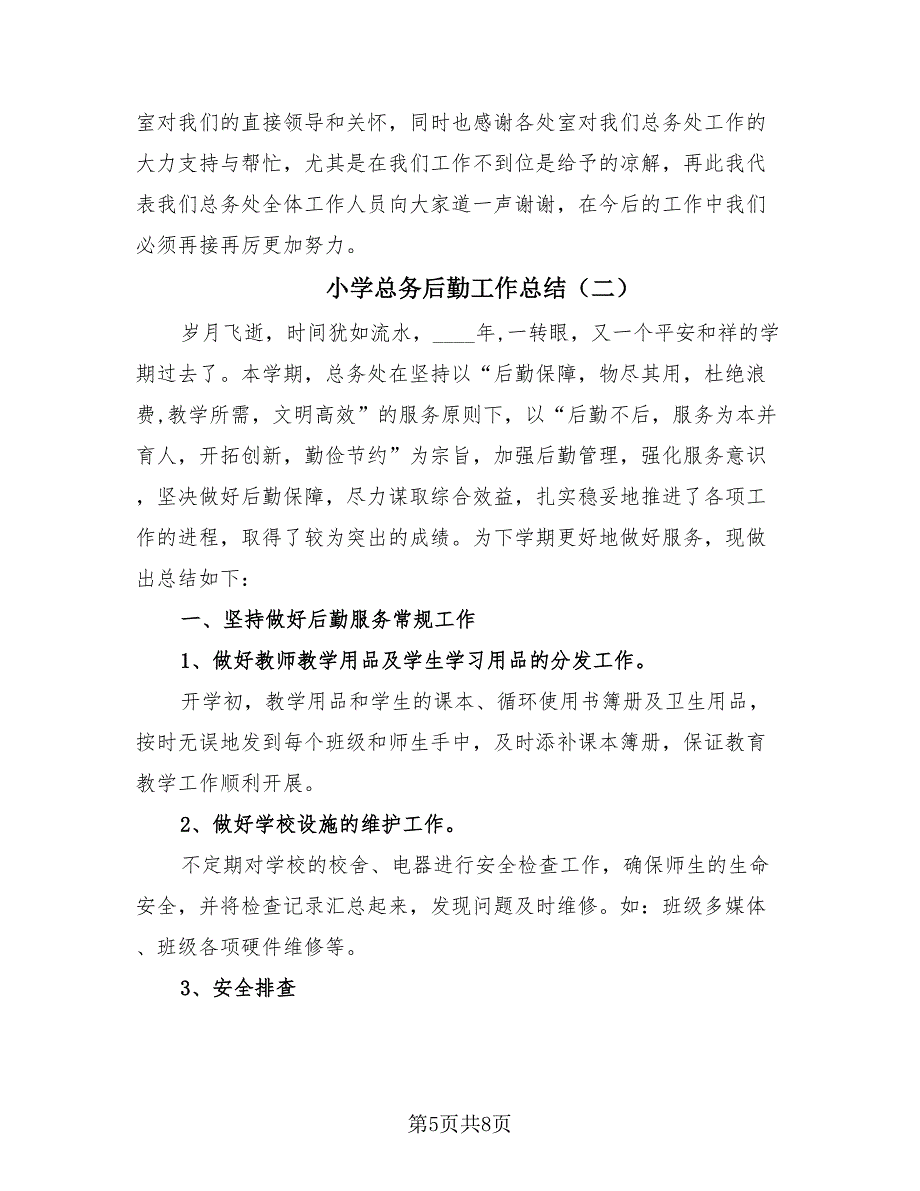 室对我们的直接领导和关怀，同时也感谢各处室对我们总务处工作的
大力支持与帮忙，尤其是在我们工作不到位是给予的凉解，再此我代
表我们总务处全体工作人员向大家道一声谢谢，在今后的工作中我们
必须再接再厉更加努力。
小学总务后勤工作总结（二）
岁月飞逝，时间犹如流水，____年,一转眼，又一个平安和祥的学
期过去了。本学期，总务处在坚持以“后勤保障，物尽其用，杜绝浪
费,教学所需，文明高效”的服务原则下，以“后勤不后，服务为本并
育人，开拓创新，勤俭节约”为宗旨，加强后勤管理，强化服务意识
，坚决做好后勤保障，尽力谋取综合效益，扎实稳妥地推进了各项工
作的进程，取得了较为突出的成绩。为下学期更好地做好服务，现做
出总结如下：
一、坚持做好后勤服务常规工作
1、做好教师教学用品及学生学习用品的分发工作。
开学初，教学用品和学生的课本、循环使用书簿册及卫生用品，
按时无误地发到每个班级和师生手中，及时添补课本簿册，保证教育
教学工作顺利开展。
2、做好学校设施的维护工作。
不定期对学校的校舍、电器进行安全检查工作，确保师生的生命
安全，并将检查记录汇总起来，发现问题及时维修。如：班级多媒体
、班级各项硬件维修等。
3、安全排查
第5页共8页